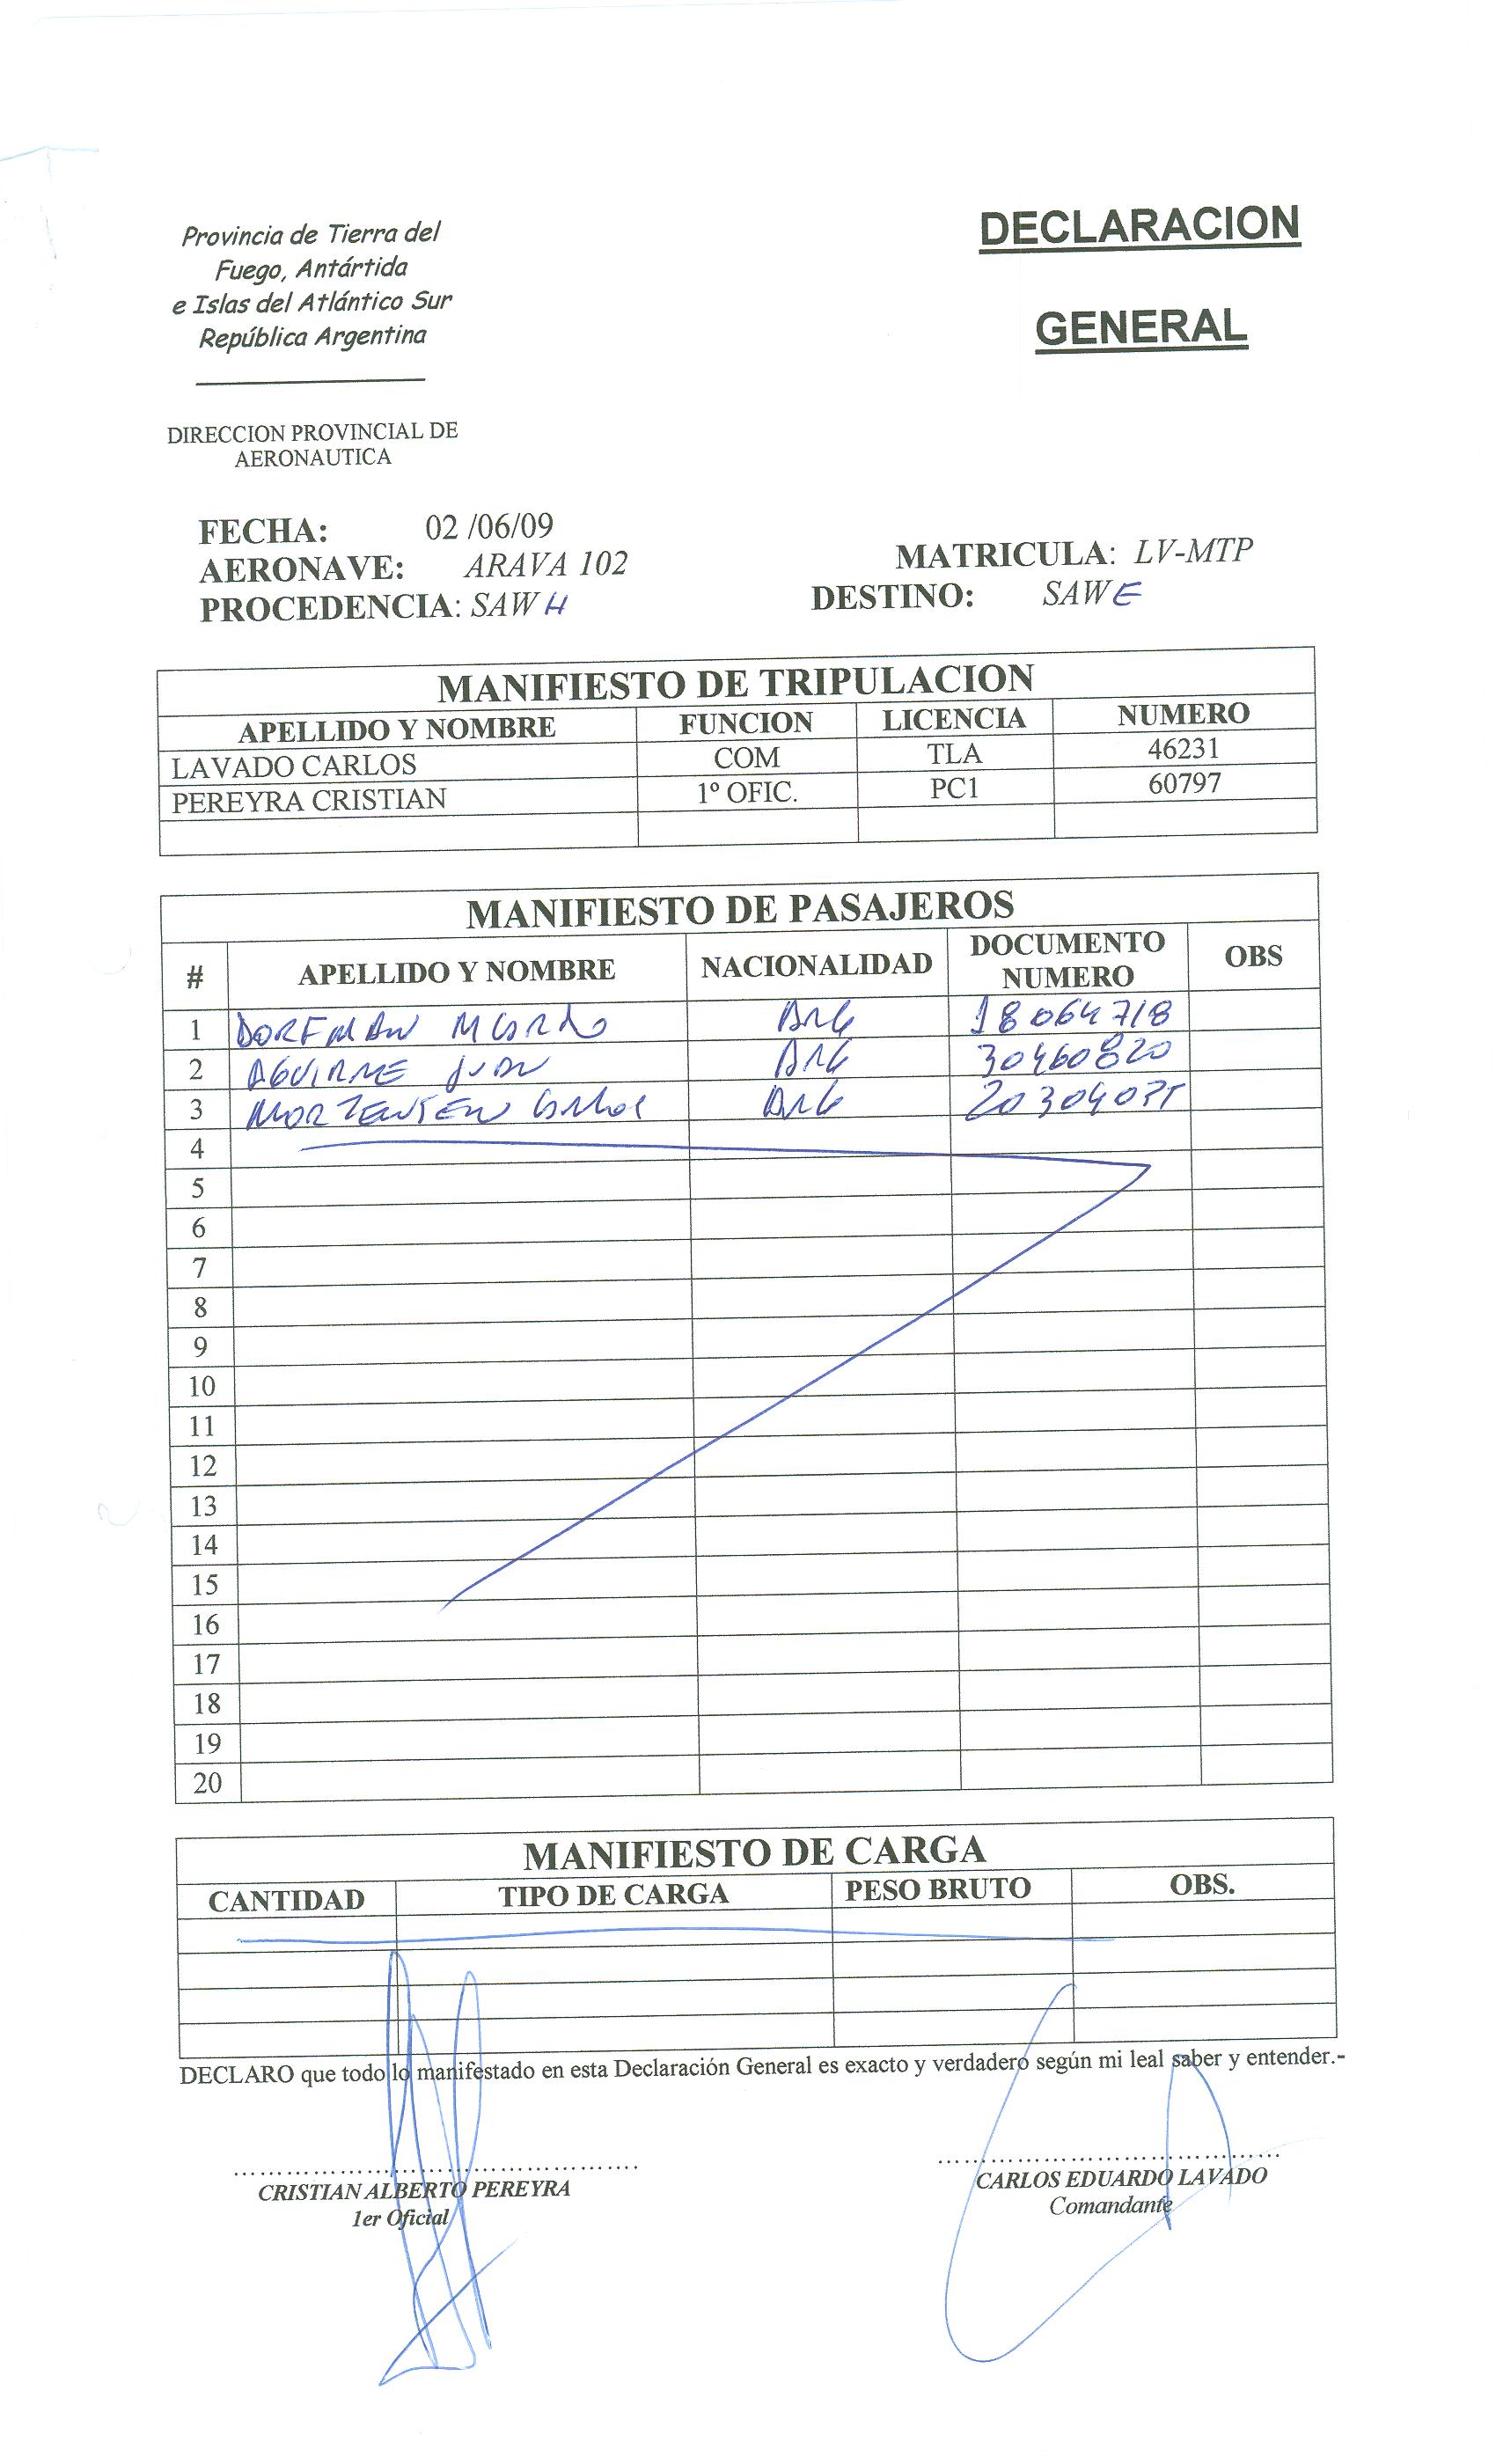 Provincia de Tierra del
Fuego, Antártida
e Islas del Atlántico Sur
República Argentina
DECLARACION
GENERAL
DIRECCION PROVINCIAL DE
AERONAUTICA
FECHA: 02 /06/09
AERONAVE: ARAVA 102 MATRICULA: LV-MTP
PROCEDENCIA: SAWH DESTINO: SAWE
MANIFIESTO DE TRIPULACION
APELLIDO Y NOMBRE FUNCION LICENCIA NUMERO
LAVADO CARLOS COM TLA 46231
PEREYRA CRISTIAN 1º OFIC. PC1 60797
MANIFIESTO DE PASAJEROS
# APELLIDO Y NOMBRE NACIONALIDAD DOCUMENTO NUMERO OBS
1 DORFMAN ARG 18064718
2 AGUIRRE JUAN ARG 30460820
3 MORTENSEN Carlos ARG
4
5
6
7
8
9
10
11
12
13
14
15
16
17
18
19
20
MANIFIESTO DE CARGA
CANTIDAD TIPO DE CARGA PESO BRUTO OBS.
DECLARO que todo lo manifestado en esta Declaración General es exacto y verdadero según mi leal saber y entender.-
CRISTIAN ALBERTO PEREYRA
1er Oficial
CARLOS EDUARDO LAVADO
Comandante